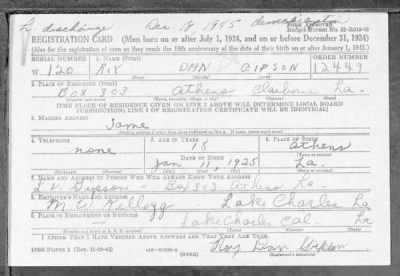 discharge Dec. 18 1945 demobilization
REGISTRATION CARD (Men born on or after July 1, 1924, and on or before December 31, 1924)
(Also for the registration of men as they reach the 18th anniversary of the date of their birth on or after January 1, 1943.)
SERIAL NUMBER 1. NAME (Print) ORDER NUMBER
W. 120 ROY DAN GIPSON 12449
2. PLACE OF RESIDENCE (Print)
BOX 303 Athens Claiborne La.
[THE PLACE OF RESIDENCE GIVEN ON LINE 2 ABOVE WILL DETERMINE LOCAL BOARD
JURISDICTION; LINE 2 OF REGISTRATION CERTIFICATE WILL BE IDENTICAL]
3. MAILING ADDRESS
Same
4. TELEPHONE 5. AGE IN YEARS 6. PLACE OF BIRTH
none 18 Athens
DATE OF BIRTH
Jan 11, 1925 La.
7. NAME AND ADDRESS OF PERSON WHO WILL ALWAYS KNOW YOUR ADDRESS
Box 303 Athens La
8. EMPLOYER'S NAME AND ADDRESS
M. W. Kellogg Lake Charles La
9. PLACE OF EMPLOYMENT OR BUSINESS
Lake Charles Cal. La
I AFFIRM THAT I HAVE VERIFIED ABOVE ANSWERS AND THAT THEY ARE TRUE.
DSS Form 1
Roy Dan Gipson